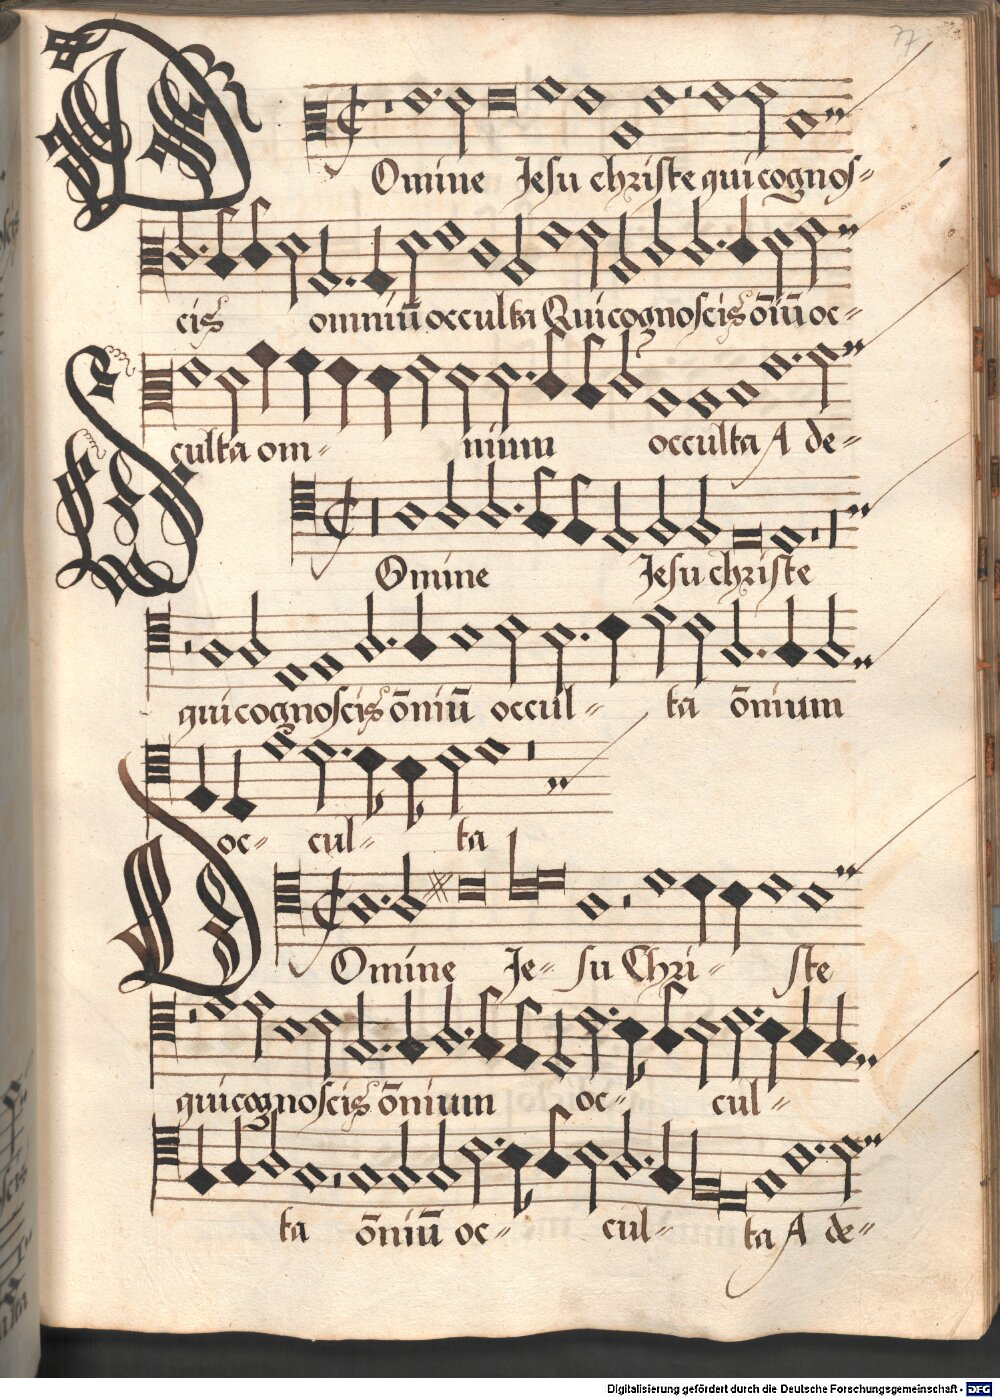 77
Domine Jesu christe qui cognos=
cis omniū occulta Qui cognoscis oīuū oc=
culta om= nium occulta A de=
Domine Jesu christe
qui cognoscis ōniū occul= ta ōnium
oc= cul= ta
Domine Je= su Chri= ste
qui cognoscis ōnium oc= cul=
ta ōniū oc= cul= ta A de=
Digitalisierung gefördert durch die Deutsche Forschungsgemeinschaft - DFG